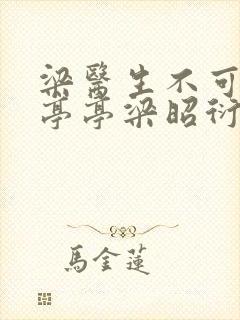 梁醫生不可
亭亭梁昭衍
馬金蓮